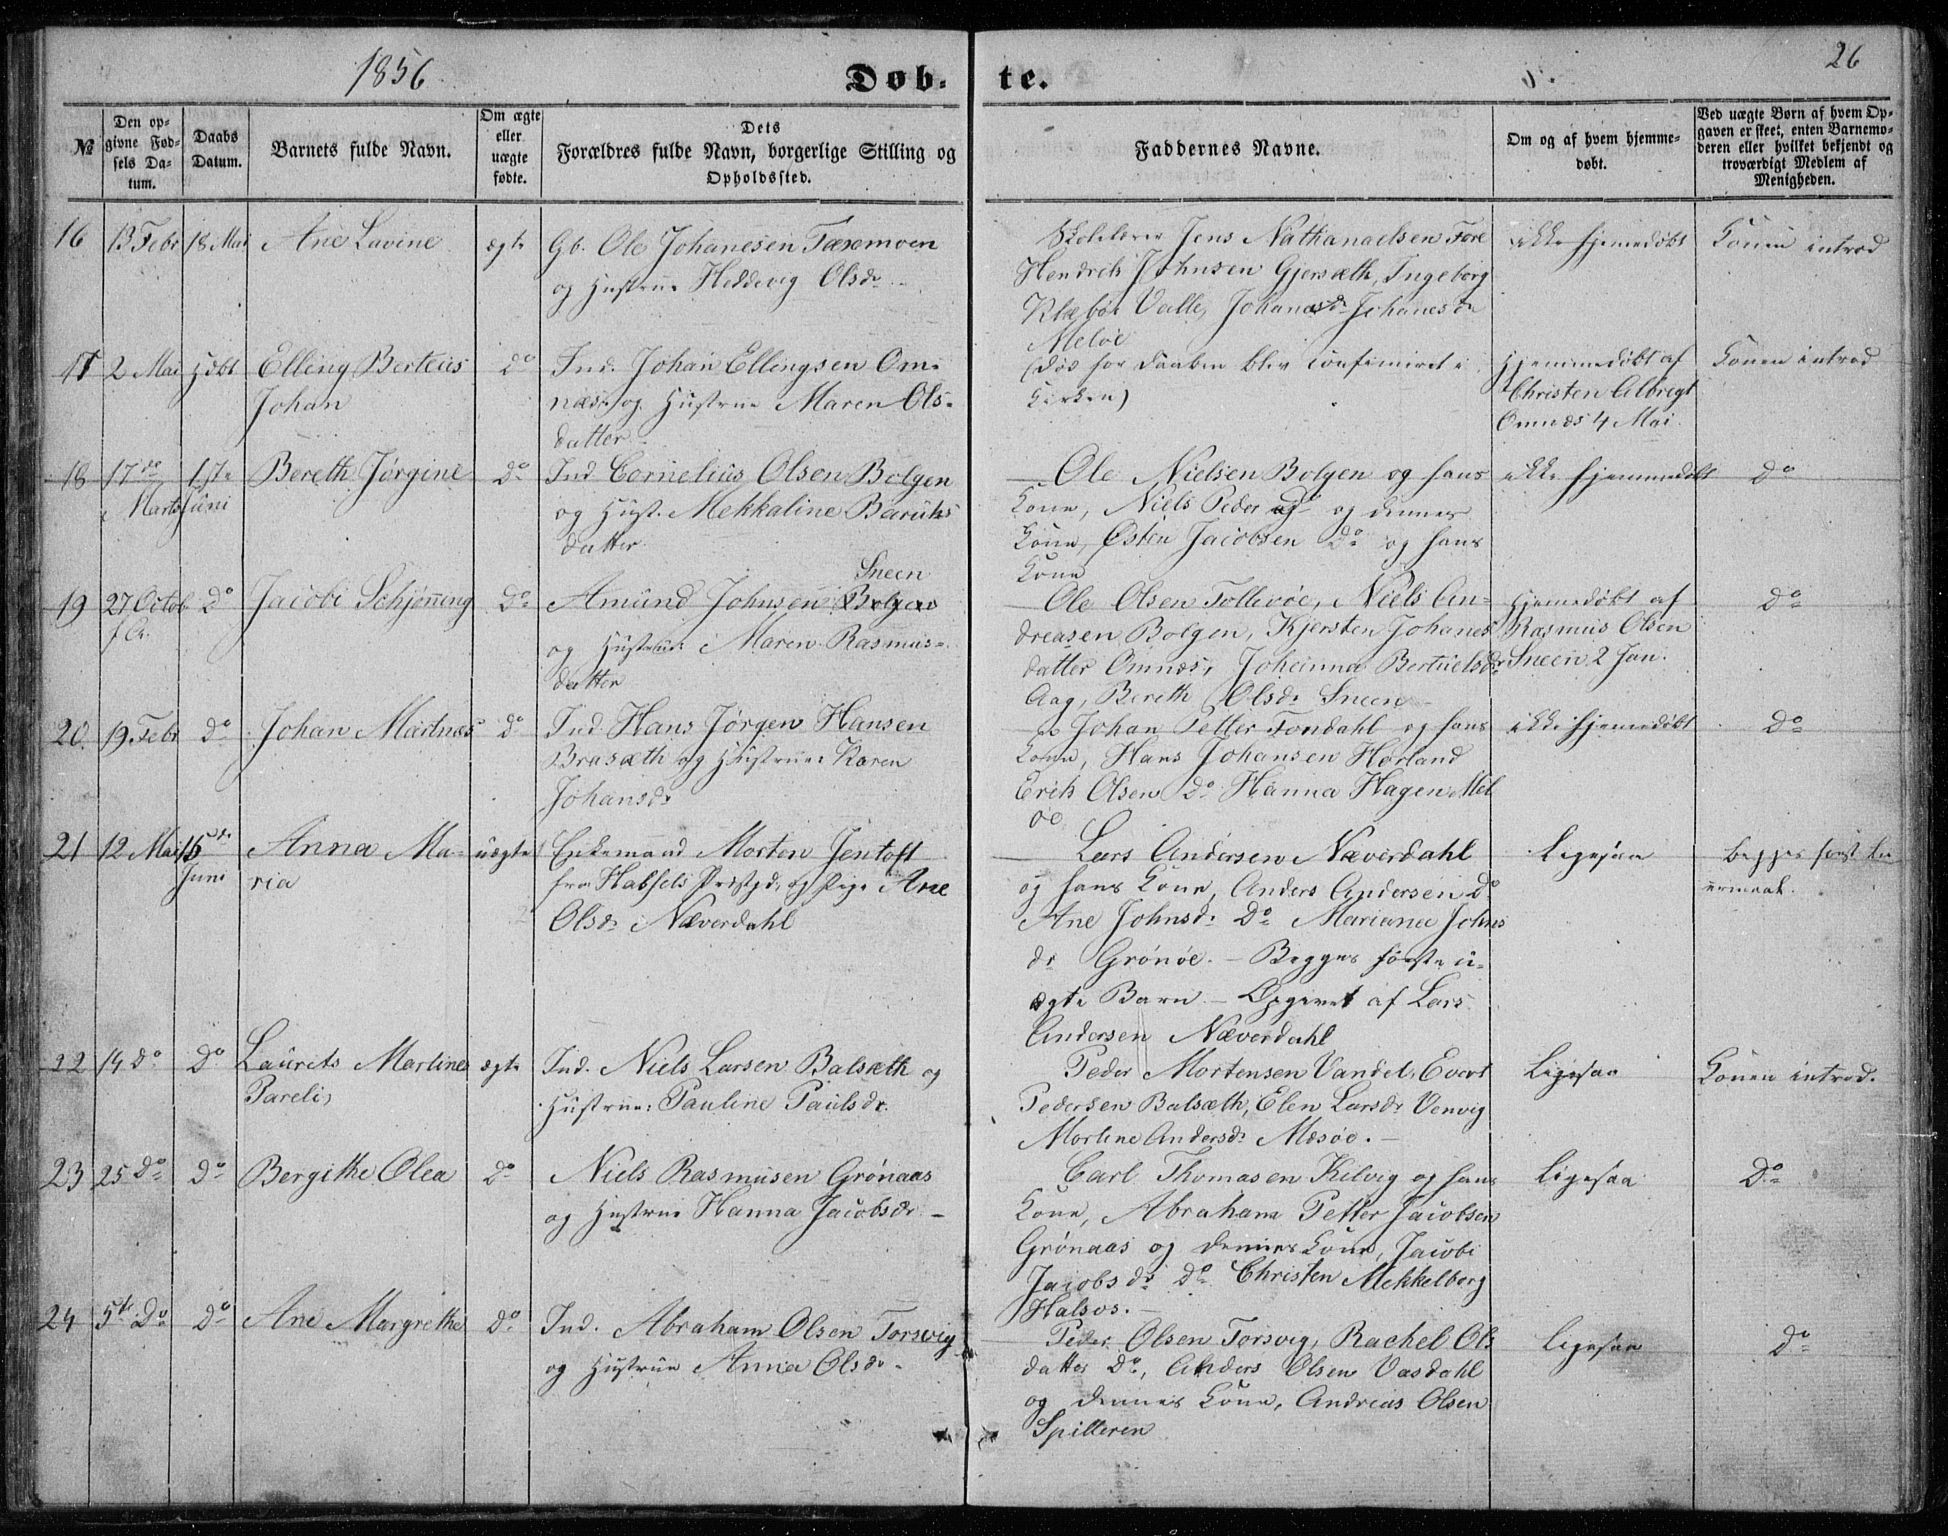 1856
Døb-
te.
26
№
Den op-
givne Fød-
sels Da-
tum.
Daabs
Datum.
Barnets fulde Navn.
Om ægte
eller
uægte
fødte.
Dets
Forældres fulde Navn, borgerlige Stilling og
Opholdssted.
Faddernes Navne.
Om og af hvem hjemme-
døbt.
Ved uægte Børn af hvem Op-
gaven er skeet, enten Barnemo-
deren eller hvilket bekjendt og
troværdigt Medlem af
Menigheden.
16
13 Febr
18 Mai
Ane Lavine
ægte
Gb. Ole Johanesen
og Hustrue Heddevig Olsdr
Skolelærer Jens Nathanaelsen Fore
Hendrik Johnsen Gjersæth, Ingeborg
Klæboe Valle, Johanes Johanesdr
Meløe
ikke hjemedøbt
Konen introd
17
2 Mai
Hdbt
Elling Berteus
Johan
do
Ind. Johan Ellingsen Om-
næs og Hustrue Maren Ols-
datter
(døde før Daaben blev confirmeret i
Kirken)
Hjemmedøbt af
Christen Albregt
Omnæs 4 Mai.
Konen introd
18
17de
Marts
1ste
Juni
Bereth Jørgine
do
Ind Cornelius Olsen Bolgen
og Hust. Mekkaline Baruks
datter
Ole Nielsen Bolgen og hans
Kone, Niels Peder og dennes
Kone, Østen Jacobsen do og hans
Kone
ikke hjemmedøbt
do
19
27 Octob
f. A.
do
Jacobi Schjønning
do
Sneen
Amund Johnsen Bolgen
og Hustrue Maren Rasmus-
datter
Ole Olsen Tollevøe, Niels An-
dreasen Bolgen, Kjersten Johanes
datter Omnæs, Johanna Bertuelsdr
Aag, Bereth Olsdr Sneen
Hjemedøbt af
Rasmus Olsen
Sneen 2 Jan.
do
20.
19 Febr
do
Johan Martnæs
do
Ind Hans Jørgen Hansen
Brasæth og Hustrue Karen
Johansdr
Johan Petter Fondahl og hans
Kone, Hans Johansen Hørland
Erik Olsen do Hanna Hagen Mel
øe
ikke hjemedøbt
do
21
12 Mai
15de
Juni
Anna Ma-
ria
uægte
Enkemand Morten Jentoft
fra Hassels Prstgd. og Pige Ane
Olsdr Næverdahl
Lars Andersen Næverdahl
og hans Kone, Anders Andersen do
Ane Johnsdr do Mariana Johns
dr Grønøe. - Begges første u-
ægte Barn - Opgivet af Lars
Andersen Næverdahl
Ligesaa
Begges første Lei
ermaal.
22
14 do
do
Laurits Martines
Pareli
ægte
Ind. Niels Larsen Balsæth og
Hustrue Pauline Paulsdr.
Peder Mortensen Vandel, Evert
Pedersen Balsæth, Elen Larsdr Venvig
Mortine Andersdr Mesøe. -
Ligesaa
Konen introd.
23
25 do
do
Bergithe Olea
do
Niels Rasmusen Grønaas
og Hustrue Hanna Jacobsdr -
Carl Thomasen Kilvig og hans
Kone, Abraham Petter Jacobsen
Grønaas og dennes Kone, Jacobi
Jacobsdr do Christen Mekkelborg
Halsos. -
Ligesaa
do
24
5te do
do
Ane Margrethe
do
Ind. Abraham Olsen Torsvig
og Hustrue Anna Olsdr -
Peder Olsen Torsvig, Rachel Ols
datter do, Anders Olsen Vasdahl
og dennes Kone, Andreas Olsen
Spilderen
Ligesaa
do